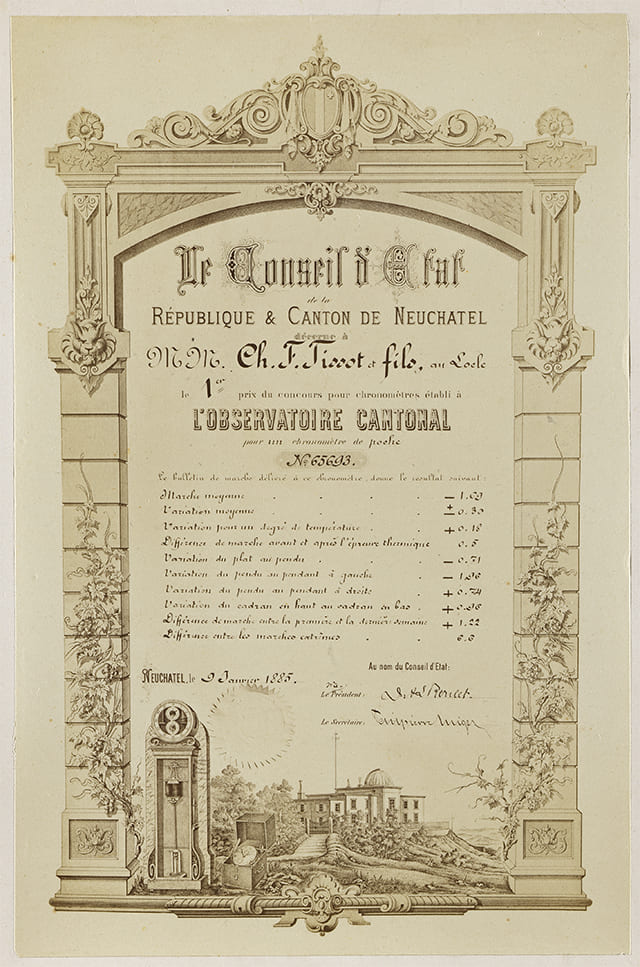 Le Conseil d'Etat
de la
RÉPUBLIQUE & CANTON DE NEUCHATEL
décerne à
MM. Ch. F. Tissot et fils, au Locle
le 1er prix du concours pour chronomètres établi à
L'OBSERVATOIRE CANTONAL
pour un chronomètre de poche
No 65693.
Le bulletin de marche délivré à ce chronomètre, donne le résultat suivant:
Marche moyenne . . . . — 1.69
Variation moyenne . . . . ± 0.30
Variation pour un degré de température . . + 0.18
Différence de marche avant et après l'épreuve thermique 0.5
Variation du plat au pendu . . . . — 0.71
Variation du pendu au pendant à gauche . — 1.26
Variation du pendu au pendant à droite . + 0.74
Variation du cadran en haut au cadran en bas . + 0.26
Différence de marche entre la première et la dernière semaine + 1.22
Différence entre les marches extrêmes . . 6.6
NEUCHATEL, le 9 Janvier 1885.
Au nom du Conseil d'Etat:
Le Président:
Le Secrétaire:
8